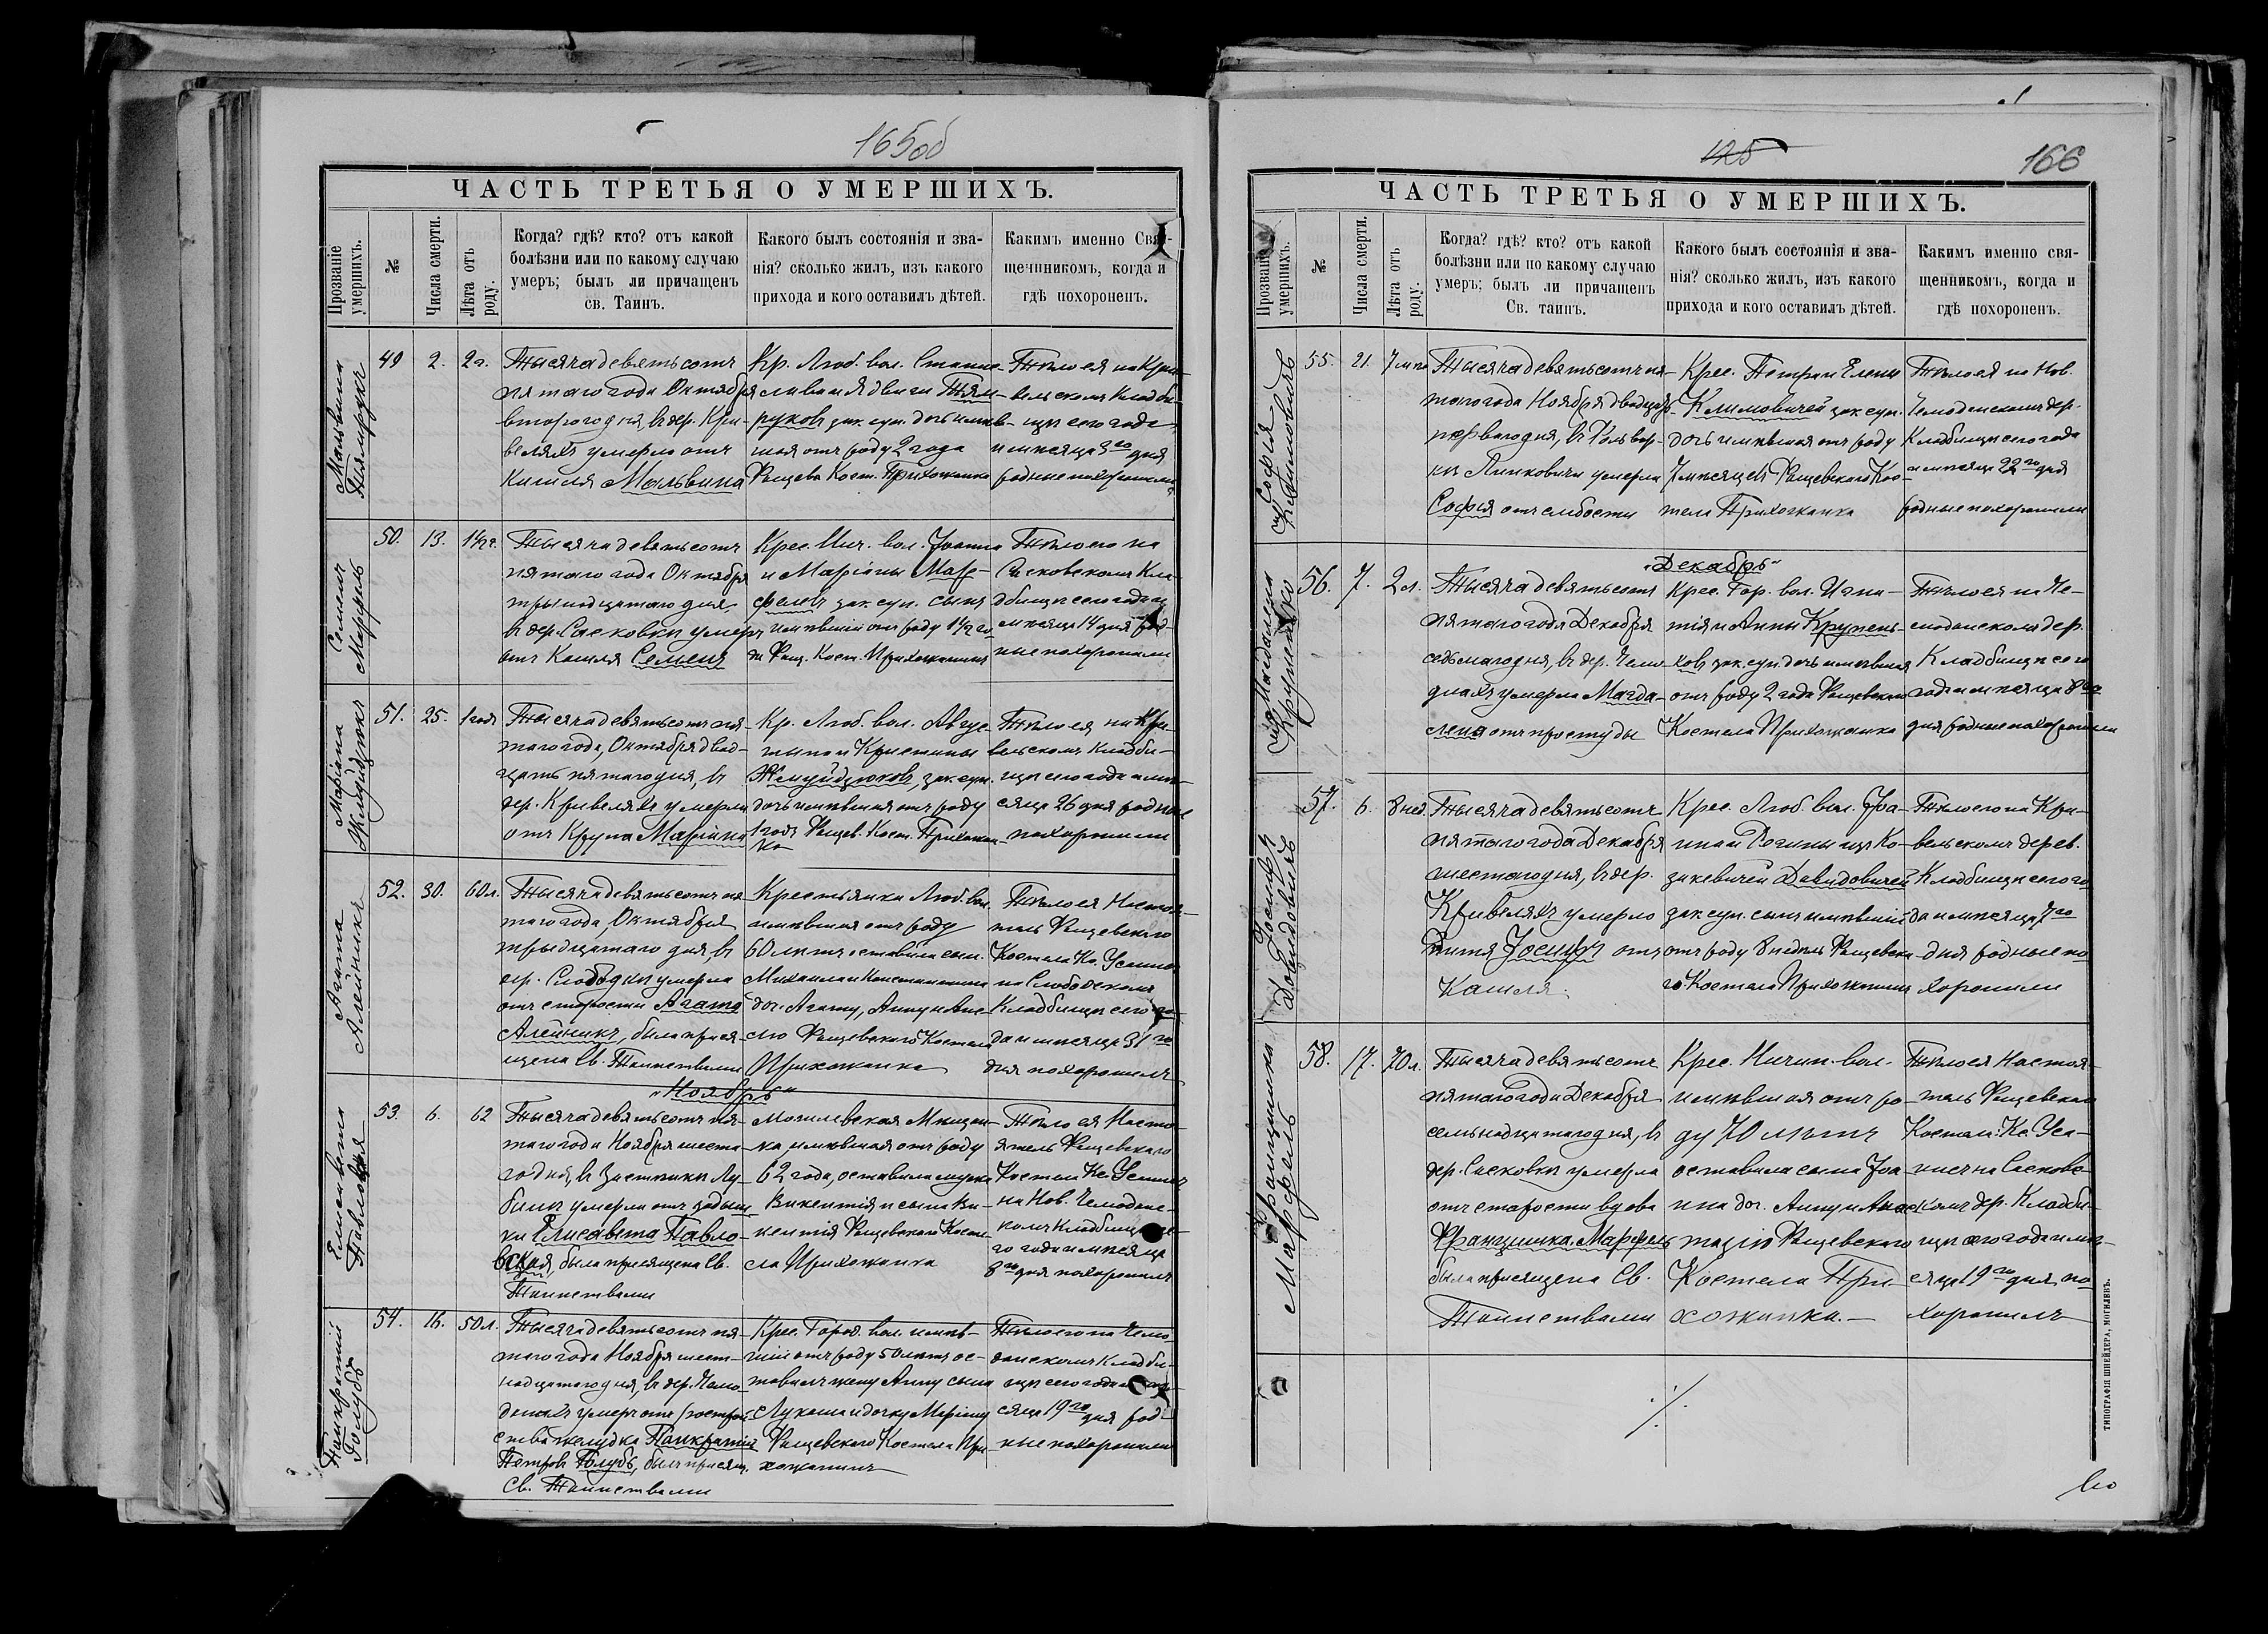 165об
ЧАСТЬ ТРЕТЬЯ О УМЕРШИХЪ.
Прозваніе умершихъ.
№
Числа смерти.
Лѣта отъ роду.
Когда? гдѣ? кто? отъ какой
болѣзни или по какому случаю
умеръ; былъ ли причащенъ
св. Таинъ.
Какого былъ состоянія и зва-
нія? сколько жилъ, изъ какого
прихода и кого оставилъ дѣтей.
Какимъ именно Свя-
щенникомъ, когда и
гдѣ похороненъ.
Мальвина
49
2.
2г.
Тысяча девятьсотъ
пятаго года Октября
второго дня, въ дер. Кри-
веляхъ умерла отъ
кашля Мальвина
Кр. Люб. вол. Станис-
слава и Ядвиги
зак. суп. дочь имѣв-
шая отъ роду 2 года
Рящева Кост. Прихожанка
Тѣло ея на Кри-
вельскомъ кладби-
щѣ сего года
и мѣсяца 3го дня
родные похоронили
Семенъ
Марфель
50.
13.
1½г.
Тысяча девятьсотъ
пятаго года Октября
трынадцатаго дня,
въ дер. Сасковки умеръ
отъ Кашля Семенъ
Крес. Нич. вол. Іоанна
и Маріаны Мар-
фелевъ зак. суп. сынъ
имѣвшій отъ роду 1½ го-
да Рящ. Кост. Прихожанинъ
Тѣло его на
Сасковскомъ Кла-
дбищѣ сего года и
мѣсяца 14 дня род-
ные похоронили
Маріана
Жмуйдзюкъ
51.
25.
1 годъ
Тысяча девятьсотъ пя-
таго года, Октября двад-
цать пятаго дня, въ
дер. Кривеляхъ умерла
отъ Крупа Маріана
Кр. Люб. вол. Авгус-
тына и Кристины
Жмуйдзюковъ, зак. суп.
дочь имѣвшая отъ роду
1 годъ Рящев. Кост. Прихожан-
ка
Тѣло ея на Кри-
вельскомъ кладби-
щѣ сего года и мѣ-
сяца 26 дня родные
похоронили
Агата
Алейникъ
52.
30.
60л.
Тысяча девятьсотъ пя-
таго года, Октября
трыдцатаго дня, въ
дер. Слободки умерла
отъ старости Агата
Алейникъ, была прися-
щена Св. Таинствами
Крестьянка Люб. вол.
имѣвшая отъ роду
60 лѣтъ оставила сын.
Михаила и Константина
доч. Агату, Анну и Ане-
лю Рящевскаго Костела
Прихожанка
Тѣло ея Настоя-
тель Рящевскаго
Костела Кс.
на Слободскомъ
Кладбищѣ сего го-
да и мѣсяца 31го
дня похоронилъ
"Ноябрь"
Елисавета
Павловская
53.
6.
62
Тысяча девятьсотъ пя-
таго года Ноября шеста-
го дня, въ Застѣнки Лу-
бинѣ умерла отъ задыш-
ки Елисавета Павло-
вская, была присящена Св.
Таинствами
Могилевская Мѣщан-
ка имѣвшая отъ роду
62 года, оставила мужа
Викентія и сына Ви-
кентія Рящевскаго Косте-
ла Прихожанка
Тѣло ея Насто-
ятель Рящевскаго
Костела Кс.
на Нов. Чемоданс-
комъ Кладбищѣ се-
го года и мѣсяца
8го дня похоронилъ
Панкратій
Голубъ
54.
16.
50л.
Тысяча девятьсотъ пя-
таго года Ноября шест-
надцатаго дня, въ дер. Чемо-
данахъ умеръ отъ разстрой-
ства желудка Панкратій
Петровъ Голубъ, былъ присящ.
Св. Таинствами
Крес. Город. вол. имѣв-
шій отъ роду 50 лѣтъ ос-
тавилъ жену Анну сына
Лукаша и дочку Маріану
Рящевскаго Костела При-
хожанинъ
Тѣло его на Чемо-
данскомъ Кладби-
щѣ сего года и мѣ-
сяца 19го дня род-
ные похоронили
125
166
ЧАСТЬ ТРЕТЬЯ О УМЕРШИХЪ.
Прозваніе умершихъ.
№
Числа смерти.
Лѣта отъ роду.
Когда? гдѣ? кто? отъ какой
болѣзни или по какому случаю
умеръ; былъ ли причащенъ
Св. таинъ.
Какого былъ состоянія и зва-
нія? сколько жилъ, изъ какого
прихода и кого оставилъ дѣтей.
Какимъ именно свя-
щенникомъ, когда и
гдѣ похороненъ.
Софія
Климовичъ
55.
21.
Тысяча девятьсотъ пя-
таго года Ноября двадцать
перваго дня, въ Фольвар-
кѣ Липковичи умерла
Софія отъ слабости
Крес. Петра и Елены
Климовичей зак. суп.
дочь имѣвшая отъ роду
7 мѣсяцевъ Рящевскаго Кос-
тела Прихожанка
Тѣло ея на Нов.
Чемоданскомъ дер.
Кладбищѣ сего года
и мѣсяца 22го дня
родные похоронили
"Декабрь"
Магдалена
Крупенько
56.
7.
2л.
Тысяча девятьсотъ
пятаго года Декабря
седьмаго дня, въ дер. Чемо-
данахъ умерла Магда-
лена отъ простуды
Крес. Гор. вол. Игна-
тія и Анны Крупень-
ковъ зак. суп. дочь имѣвшая
отъ роду 2 года Рящевскаго
Костела Прихожанка
Тѣло ея на Че-
моданскомъ дер.
Кладбищѣ сего
года и мѣсяца 8го
дня родные похоронили
Іосифъ
Давидовичъ
57.
6.
8 нед.
Тысяча девятьсотъ
пятаго года Декабря
шестаго дня, въ дер.
Кривеляхъ умерло
дитя Іосифъ отъ
Кашля.
Крес. Люб. вол. Іоа-
на и Регины изъ Ко-
закевичей Давидовичей
зак. суп. сынъ имѣвшій
отъ роду 8 недѣль Рящевска-
го Костела Прихожанинъ
Тѣло его на Кри-
вельскомъ дерев.
Кладбищѣ сего го-
да и мѣсяца 7го
дня родные по-
хоронили
Францишка
Марфель
58.
17.
70л.
Тысяча девятьсотъ
пятаго года Декабря
семьнадцатаго дня, въ
дер. Сасковки умерла
отъ старости вдова
Францишка Марфель
была присящена Св.
Таинствами
Крес. Ничип. вол.
имѣвшая отъ ро-
ду 70 лѣтъ
оставила сына Іоа-
на доч. Анну и Анас-
тазію Рящевскаго
Костела При-
хожанка.—
Тѣло ея Настоя-
тель Рящевскаго
Костела: Кс.
на Сасковс-
комъ дер. Кладби-
щѣ сего года и мѣ-
сяца 19го дня по-
хоронилъ
ТИПОГРАФІЯ ШНЕЙДЕРА, МОГИЛЕВЪ.